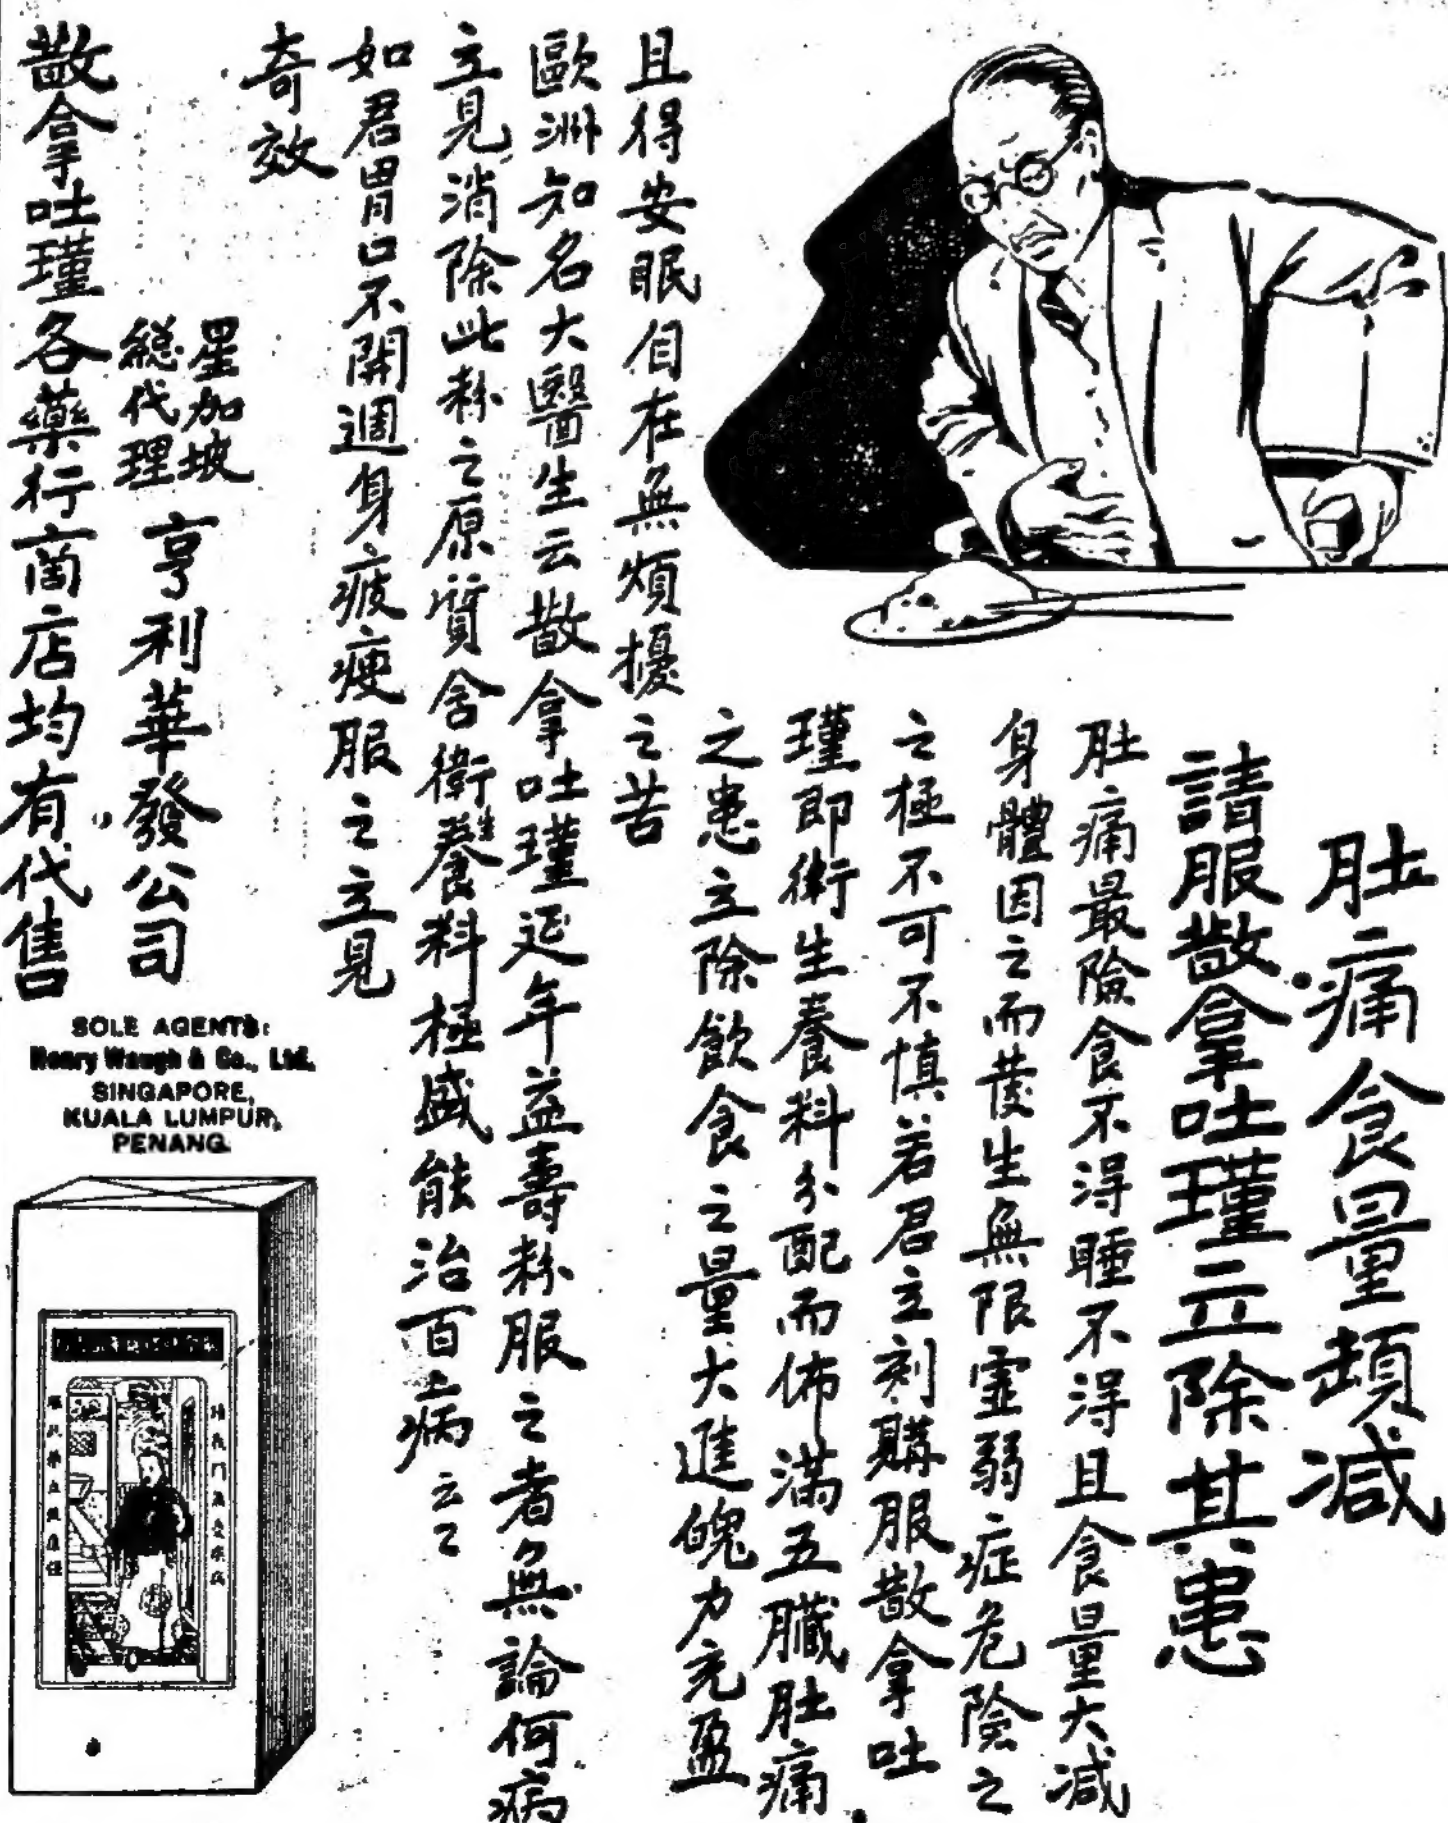 肚痛食量頓減
請服散拿吐瑾立除其患
肚痛最險食不得睡不得且食量大減
身體因之而發生無限虛弱症危險之
之極不可不慎若君立刻購服散拿吐
瑾即衛生養料分配而佈滿五臟肚痛
之患立除飲食之量大進魄力充盈
且得安眠自在無煩擾之苦
歐洲知名大醫生云散拿吐瑾延年益壽粉服之者無論何病
立見消除此粉之原質含衛生養料極盛能治百病云云
如君胃口不開週身疲痩服之立見
奇效
星加坡
總代理
亨利華發公司
散拿吐瑾各藥行商店均有代售
SOLE AGENTS:
Henry Waugh & Co., Ltd.
SINGAPORE,
KUALA LUMPUR,
PENANG.